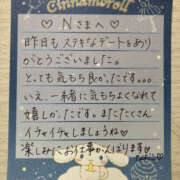 Cinnamoroll
♡ Nさまへ ♡
昨日も ステキなデートをあり
がとうございました。
とっても気もち良が。たです。。。
いえ、一緒に気もちよくなれて
嬉しか。たです。またたくさん
イチャイチャしましょうね♡
楽しみにお仕事がんばります♡